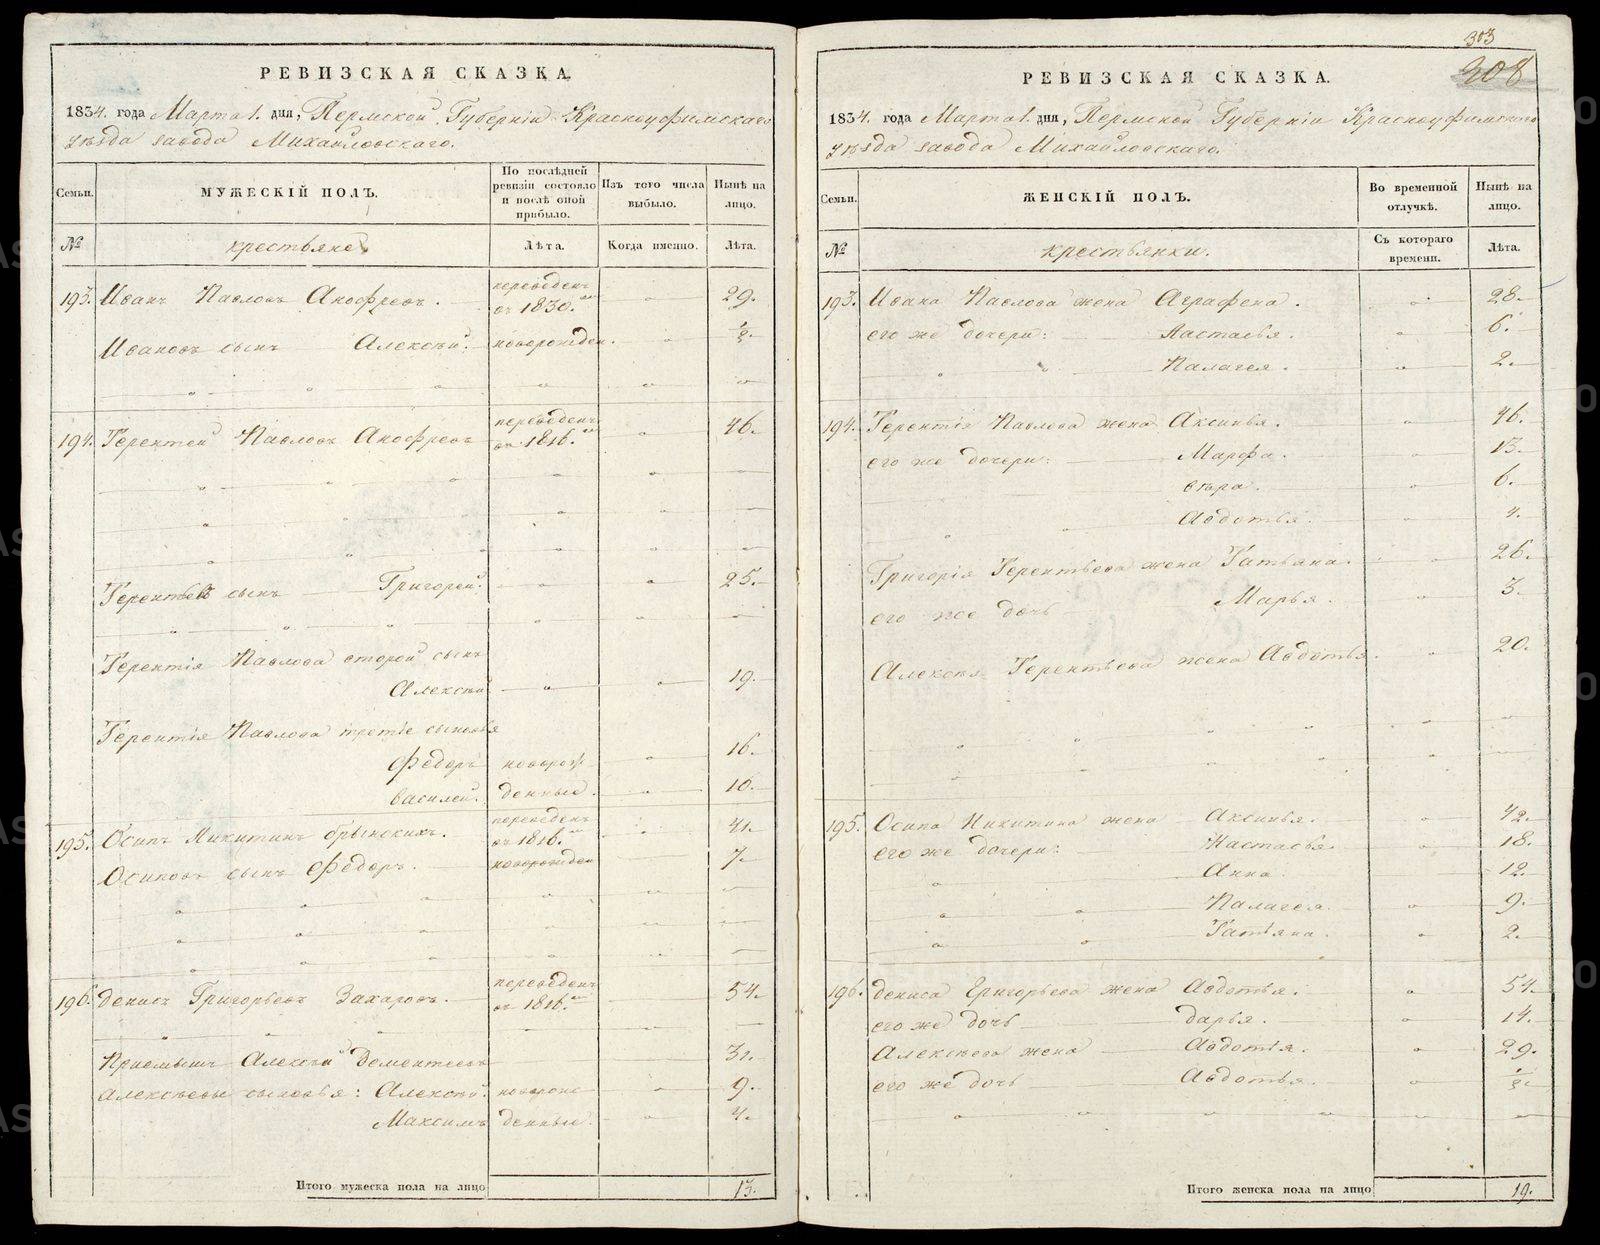 РЕВИЗСКАЯ СКАЗКА.
1834. года Марта 1. дня, Пермской Губернiи Красноуфимскаго
уѣзда завода Михайловскаго.
Семьи.
МУЖЕСКIЙ ПОЛЪ.
По послѣдней ревизiи состояло и послѣ оной прибыло.
Изъ того числа выбыло.
Нынѣ на лицо.
№
крестьяне
Лѣта.
Когда именно.
Лѣта.
193. Иванъ Павловъ Анофреевъ. переведенъ въ 1830. 29.
Ивановъ сынъ Алексѣй. новорожден. 1/2
194. Терентей Павловъ Анофреевъ переведенъ въ 1816. 46.
Терентьевъ сынъ Григорей. 25.
Терентiя Павлова второй сынъ
Алексѣй 19.
Терентiя Павлова третiе сыновья
Федоръ новорож 16.
Василей. денные. 10.
195. Осипъ Микитинъ Брынскихъ. переведенъ въ 1816. 41.
Осиповъ сынъ Федоръ. новорожден 7.
196. Денисъ Григорьевъ Захаровъ. переведенъ въ 1816. 54.
Прiемышъ Алексѣй Дементьевъ 31.
Алексѣевы сыновья: Алексѣй. новорож 9.
Максимъ денные. 4.
Итого мужеска пола на лицо 13.
303
308
РЕВИЗСКАЯ СКАЗКА.
1834. года Марта 1. дня, Пермской Губернiи Красноуфимскаго
уѣзда завода Михайловскаго.
Семьи.
ЖЕНСКIЙ ПОЛЪ.
Во временной отлучкѣ.
Нынѣ на лицо.
№
крестьянки.
Съ котораго времени.
Лѣта.
193. Ивана Павлова жена Аграфена. 28.
его же дочери: Настасья. 6.
Палагея. 2.
194. Терентiя Павлова жена Аксинья. 46.
его же дочери: Марфа. 13.
Вѣра. 6.
Авдотья. 4.
Григорiя Терентьева жена Татьяна. 26.
его же дочь Марья. 3.
Алексѣя Терентьева жена Авдотья. 20.
195. Осипа Никитина жена Аксинья. 42.
его же дочери: Настасья. 18.
Анна 12.
Палагея. 9.
Татьяна. 2.
196. Дениса Григорьева жена Авдотья. 54.
его же дочь Дарья. 14.
Алексѣева жена Авдотья. 29.
его же дочь Авдотья. 1/2
Итого женска пола на лицо 19.